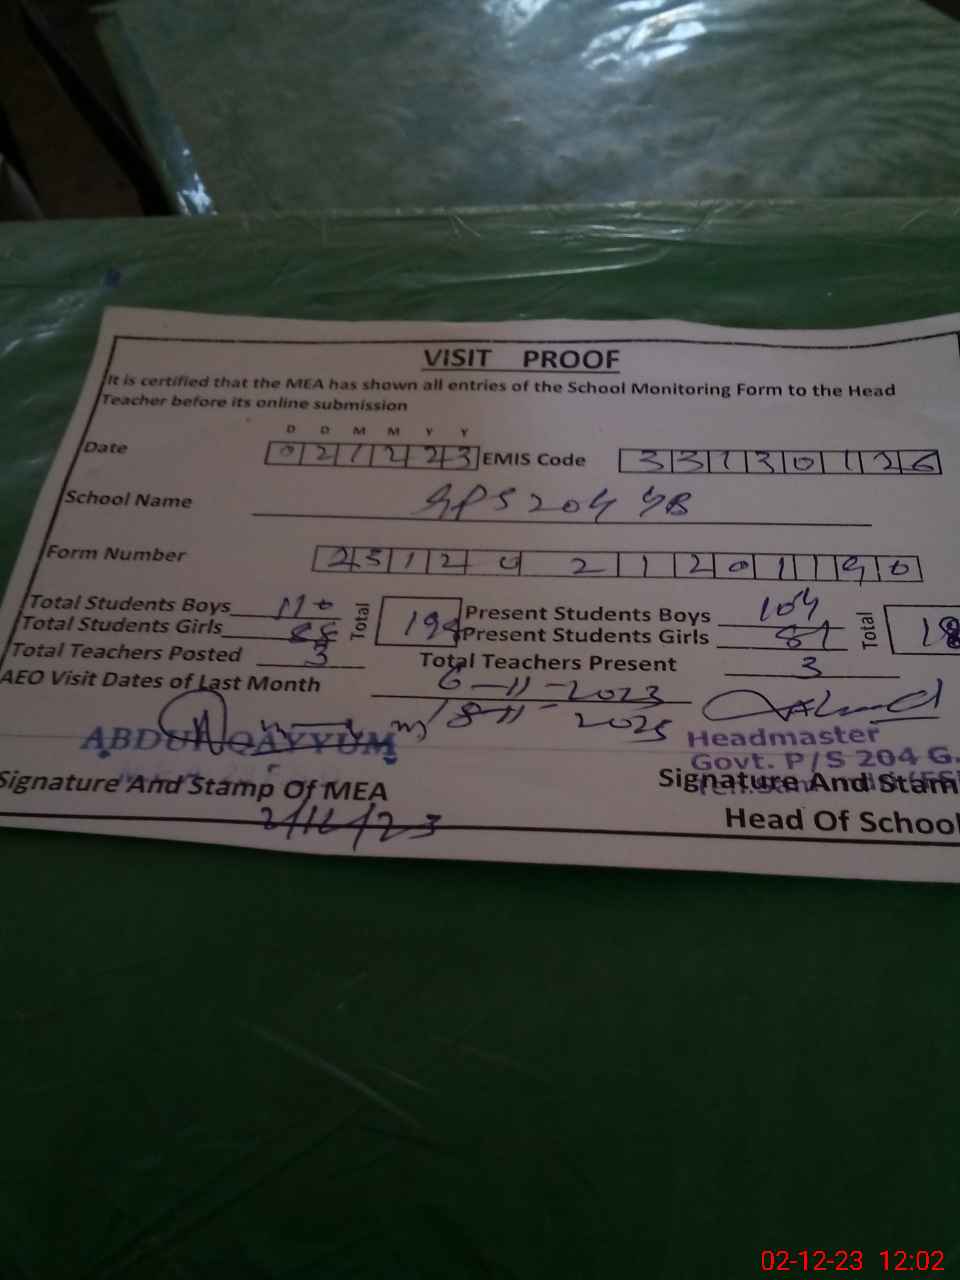 VISIT PROOF
It is certified that the MEA has shown all entries of the School Monitoring Form to the Head
Teacher before its online submission
D D M M Y Y
Date 0 2 1 2 2 3 EMIS Code 3 3 1 3 0 1 2 6
School Name GPS 204 GB
Form Number
Total Students Boys 110 Total Present Students Boys 104 Total
Total Students Girls 88 Present Students Girls
Total Teachers Posted 3 Total Teachers Present 3
AEO Visit Dates of Last Month 6-11-2023
ABDUL QAYYUM
Headmaster
Govt. P/S 204 G.
Signature And Stamp Of MEA Signature And Stam
2/12/23 Head Of School
02-12-23 12:02